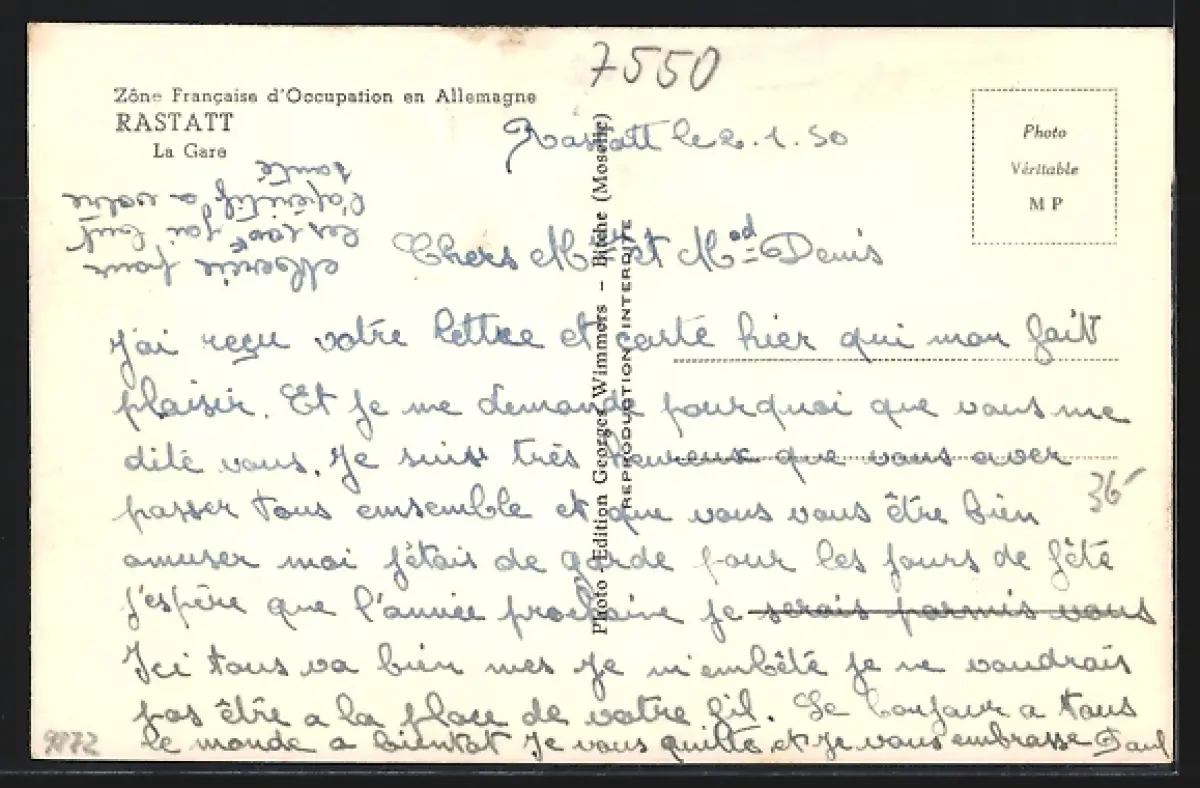 7550
Zône Française d'Occupation en Allemagne
RASTATT
La Gare
Photo
Véritable
M P
Rastatt le 2.1.50
Mercie pour
les 100F j'ai but
l'apéritif a votre
santé
Chers Mr et Mad Denis
j'ai reçu votre lettre et carte hier qui mon fait
plaisir. Et je me demande pourquoi que vous me
dite vous. Je suis très heureux que vous aver
passer tous emsemble et que vous vous être bien
amuser moi j'étais de garde pour les jours de fête
j'espère que l'année prochaine je serais parmis vous
Ici tous va bien mes je m'embêté je ne voudrais
pas être a la place de votre fil. Le bonjour a tous
le monde a bientot je vous quitte et je vous embrasse Paul
Photo Edition Georges Wimmers – Bitche (Moselle)
REPRODUCTION INTERDITE
36
9872